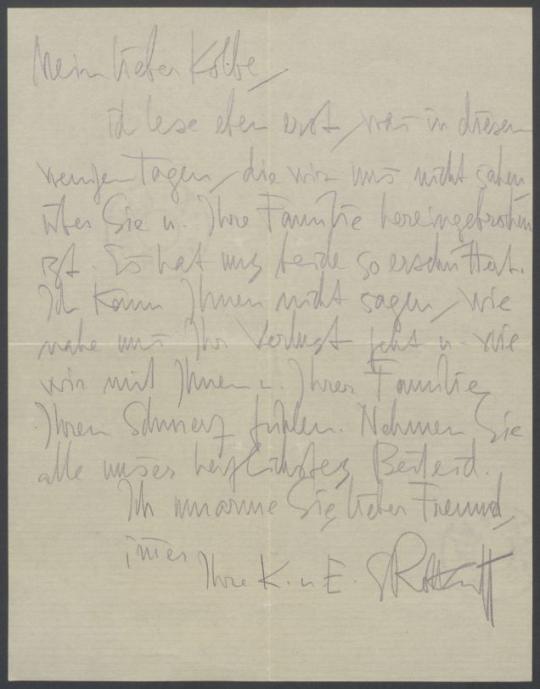 Mein lieber Kolbe,
ich lese eben erst, was in diesen
wenigen Tagen, die wir uns nicht sahen
über Sie u. Ihre Familie hereingebrochen
ist. Es hat uns beide so erschüttert.
Ich kann Ihnen nicht sagen, wie
nahe uns Ihr Verlust geht u. wie
wir mit Ihnen u. Ihrer Familie
Ihren Schmerz fühlen. Nehmen Sie
alle unser herzlichstes Beileid.
Ich umarme Sie, lieber Freund,
immer
Ihre K. u. E. SRottluff